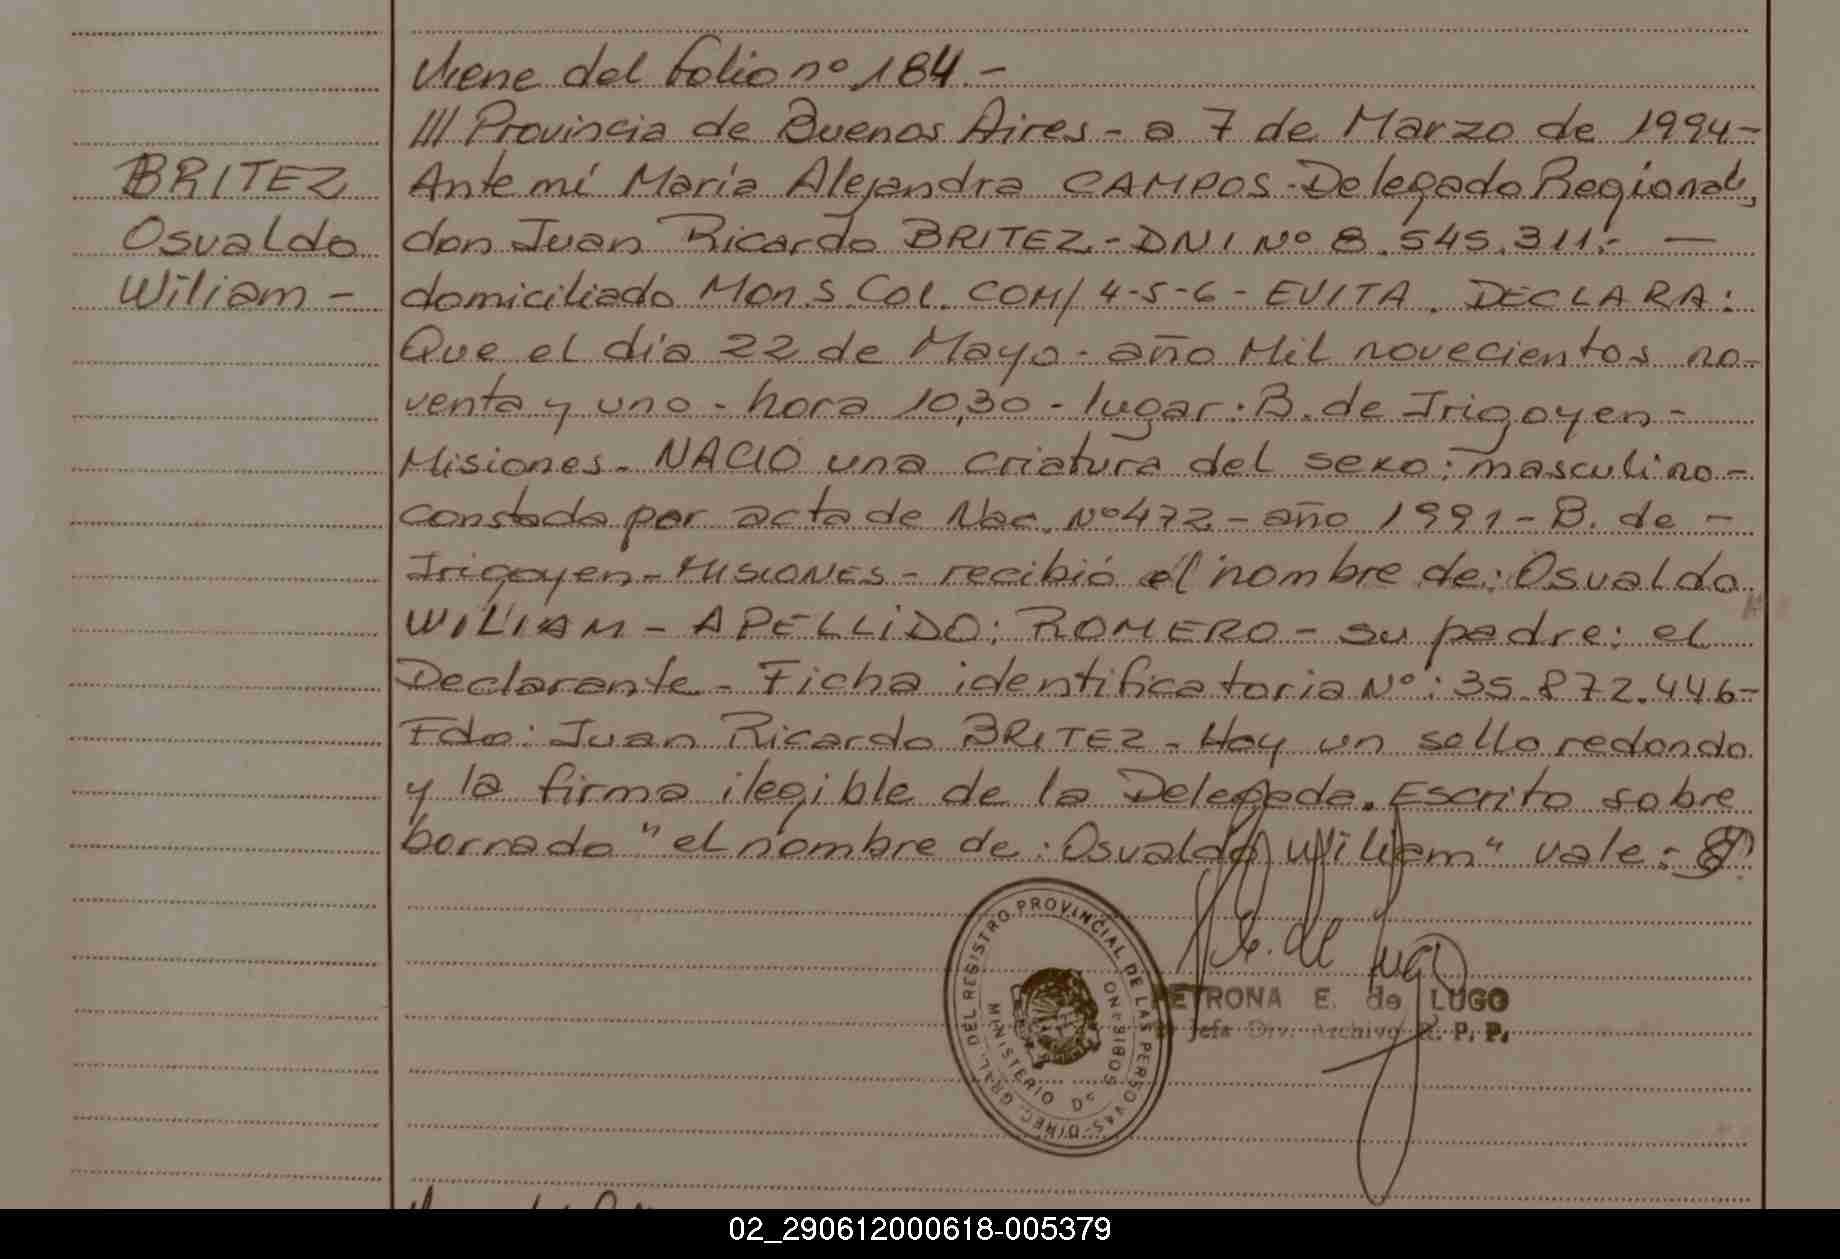 Viene del folio nº 184.-
/// Provincia de Buenos Aires - a 7 de Marzo de 1994-
BRITEZ
Ante mí María Alejandra CAMPOS - Delegado Regional,
Osvaldo
don Juan Ricardo BRITEZ - DNI Nº 8.545.311.- —
Wiliam -
domiciliado Mon S. Col. COM/ 4-5-6 - EVITA. DECLARA:
Que el día 22 de Mayo - año Mil novecientos no-
venta y uno - hora 10,30 - lugar: B. de Irigoyen -
Misiones - NACIO una criatura del sexo: masculino -
constada por acta de Nac. Nº 472 - año 1991 - B. de -
Irigoyen - MISIONES - recibió el nombre de: Osvaldo
WILIAM - APELLIDO: ROMERO - su padre: el
Declarante - Ficha identificatoria Nº: 35.872.446-
Fdo: Juan Ricardo BRITEZ - Hay un sello redondo
y la firma ilegible de la Delegada. Escrito sobre
borrado "el nombre de: Osvaldo Wiliam" vale:-
DIREC. GRAL. DEL REGISTRO PROVINCIAL DE LAS PERSONAS
MINISTERIO DE GOBIERNO
P. E. de Lugo
PETRONA E. de LUGO
Jefa Div. Archivo R. P. P.
02_290612000618-005379